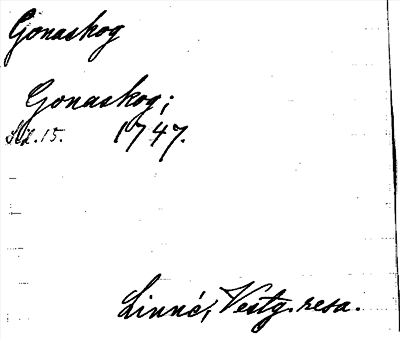 Gonaskog
Gonaskog;
15. 1747.
Linné, Vestg. resa.